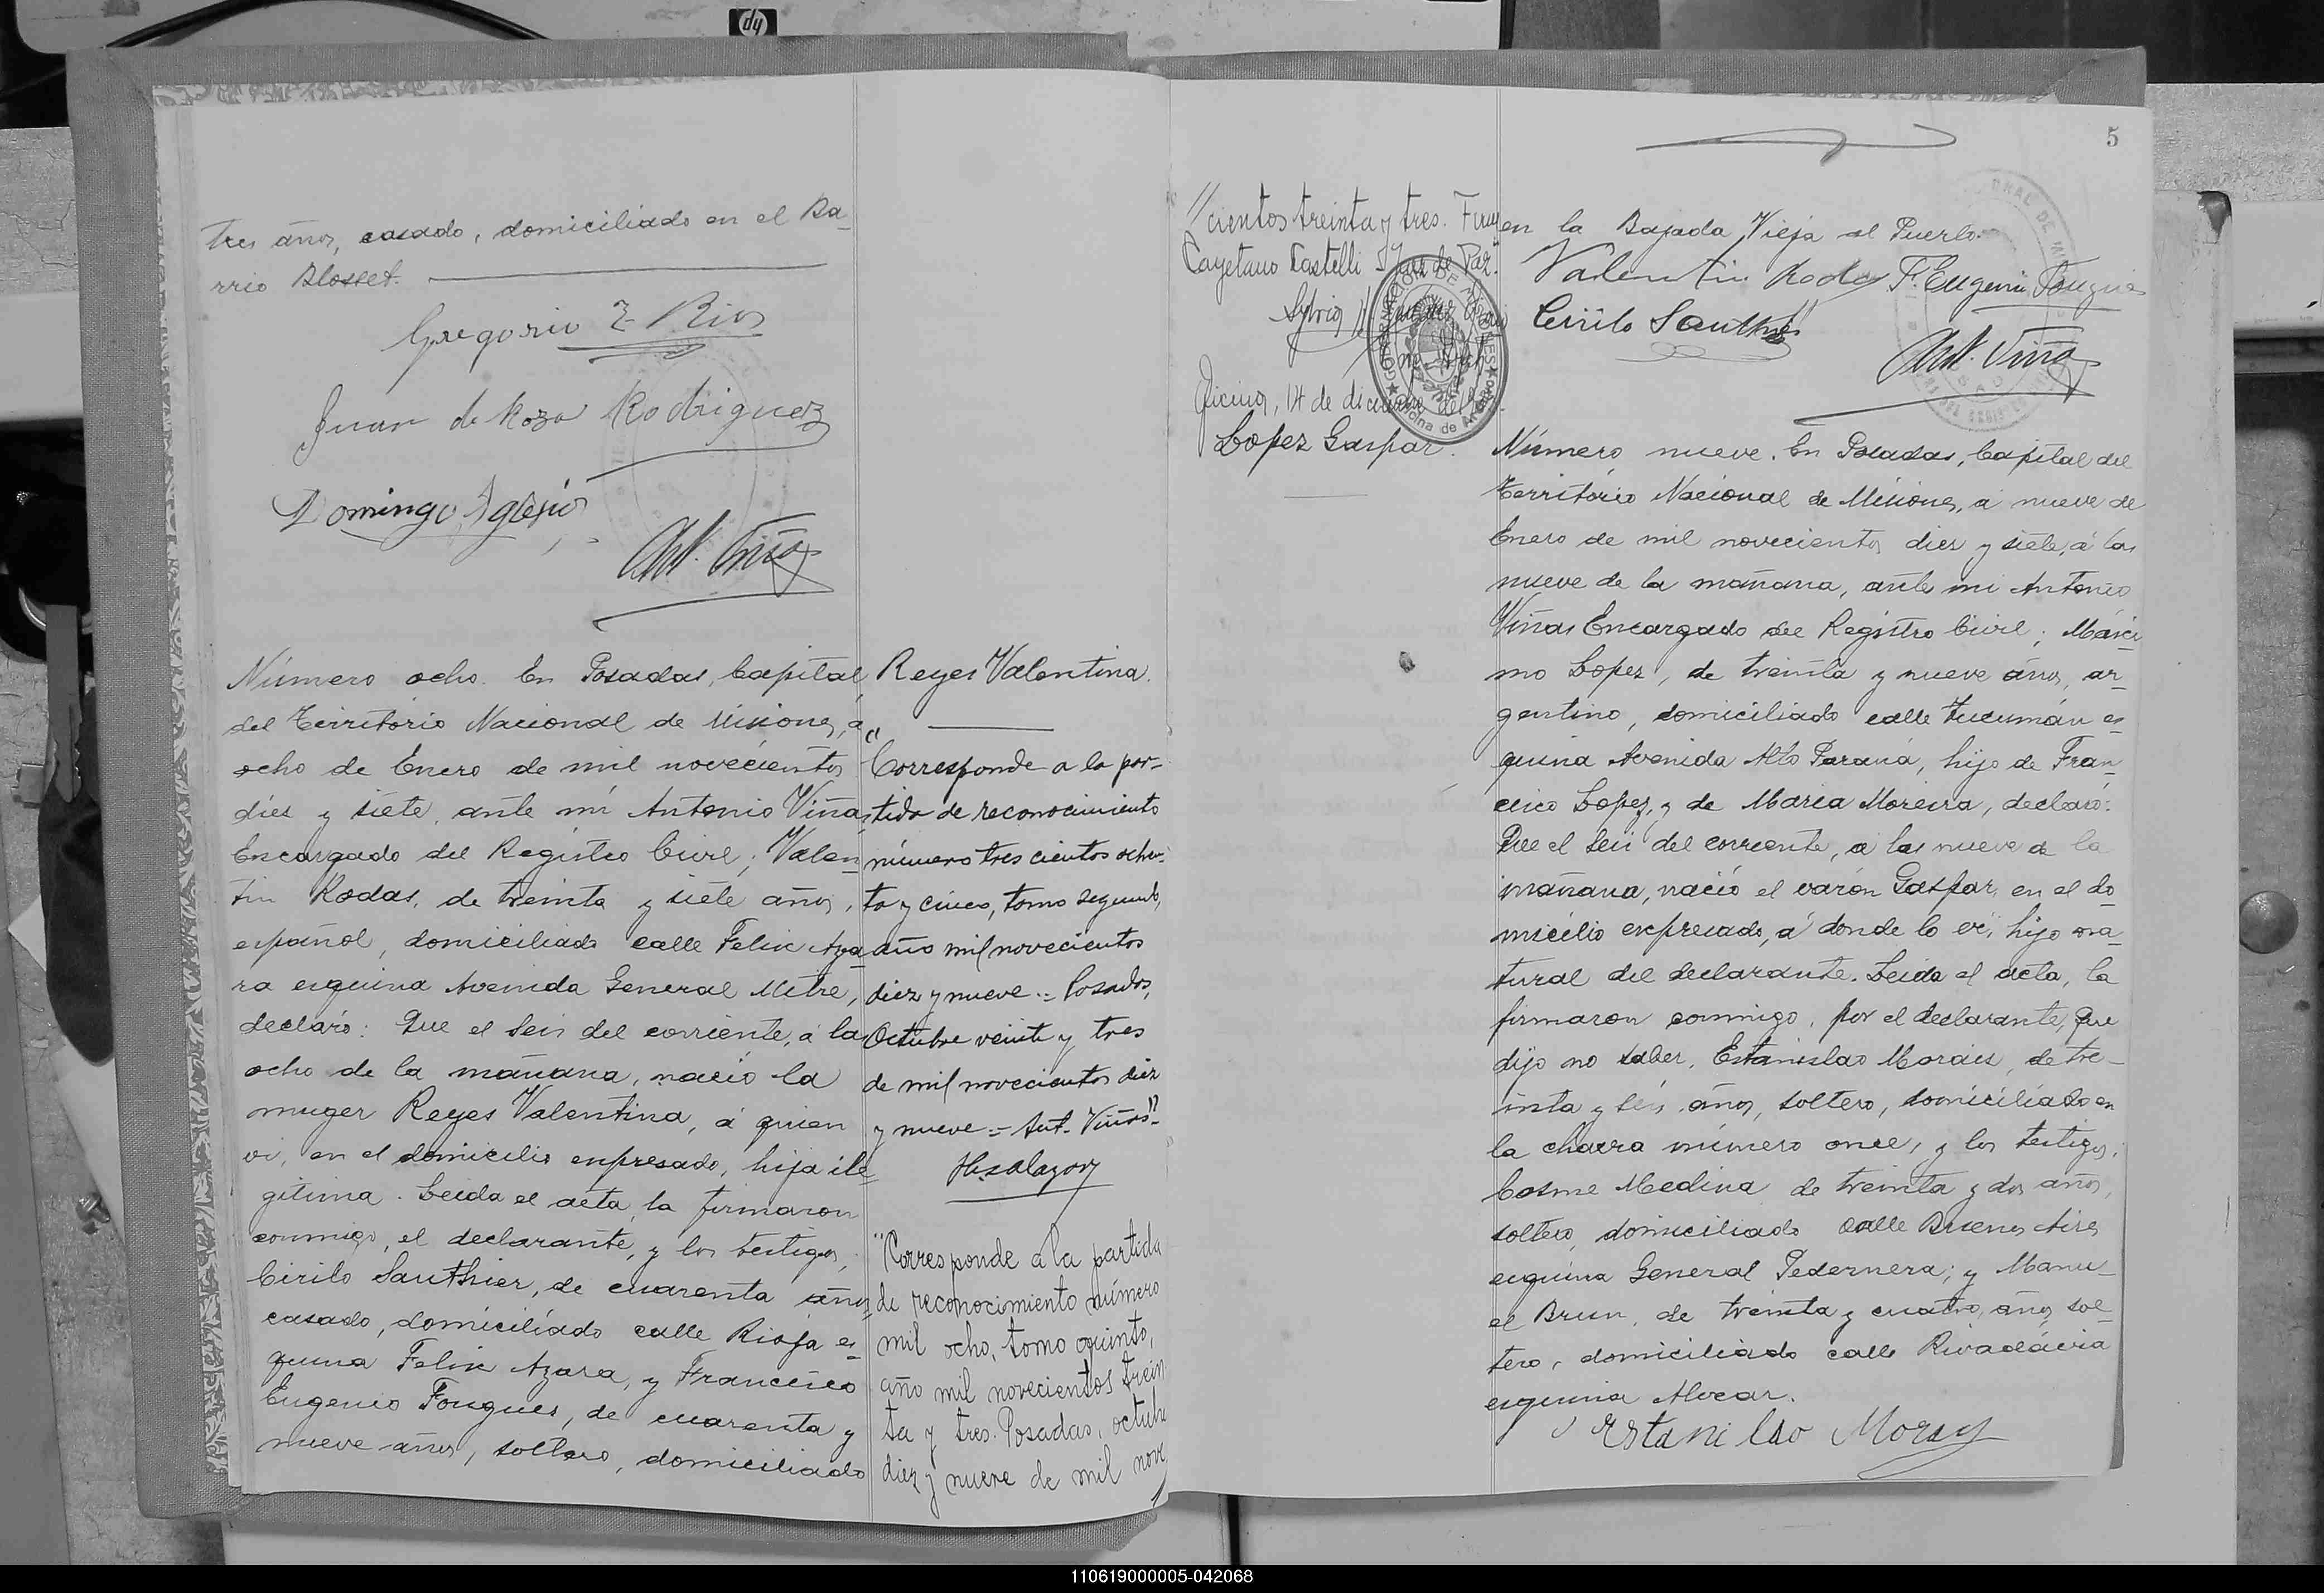 tres años, casado, domiciliado en el Ba-
rrio Blosset.
Gregorio Z. Rios
Juan de Roza Rodriguez
Domingo Iglesias
Ant. Viñas
Número ocho. En Posadas, Capital
del Territorio Nacional de Misiones, a
ocho de Enero de mil novecientos
diez y siete, ante mí Antonio Viñas
Encargado del Registro Civil; Valen-
tin Rodas, de treinta y siete años,
español, domiciliado calle Felix Aza-
ra esquina Avenida General Mitre,
declaró: Que el seis del corriente, á las
ocho de la mañana, nació la
muger Reyes Valentina, á quien
vi, en el domicilio expresado, hija ile-
gitima. Leida el acta, la firmaron
conmigo, el declarante, y los testigos,
Cirilo Sauthier, de cuarenta años,
casado, domiciliado calle Rioja es-
quina Felix Azara, y Francisco
Eugenio Fougues, de cuarenta y
nueve años, soltero, domiciliado
Reyes Valentina.
"Corresponde a la par-
tida de reconocimiento
número tres cientos ochen-
ta y cinco, tomo segundo,
año mil novecientos
diez y nueve.= Posadas,
Octubre veinte y tres
de mil novecientos diez
y nueve.= Ant. Viñas"-
"Corresponde a la partida
de reconocimiento número
mil ocho, tomo quinto,
año mil novecientos trein
ta y tres. Posadas, octubre
diez y nueve de mil nove
//
//cientos treinta y tres.
Cayetano Castelli Juez de Paz."
GOBERNACION DE MISIONES
Oficina de
14 de diciembre de
Lopez Gaspar.
5
en la Bajada Vieja al Puerto.
Valentin Rodas F. Eugenio Fougues
Cirilo Sauthier
Ant. Viñas
Número nueve. En Posadas, Capital del
Territorio Nacional de Misiones, a nueve de
Enero de mil novecientos diez y siete, á las
nueve de la mañana, ante mi Antonio
Viñas Encargado del Registro Civil; Máxi-
mo Lopez, de treinta y nueve años, ar-
gentino, domiciliado calle Tucumán es-
quina Avenida Alto Paraná, hijo de Fran-
cisco Lopez, y de María Moreira, declaró:
Que el seis del corriente, a las nueve de la
mañana, nació el varón Gaspar, en el do-
micilio expresado, á donde lo vi, hijo na-
tural del declarante. Leida el acta, la
firmaron conmigo, por el declarante, que
dijo no saber, Estanislao Moraes, de tre-
inta y seis años, soltero, domiciliado en
la chacra número once, y los testigos,
Cosme Medina de treinta y dos años,
soltero, domiciliado calle Buenos Aires
esquina General Pedernera; y Manu-
el Brun, de treinta y cuatro años, sol-
tero, domiciliado calle Rivadavia
esquina Alvear.
Estanislao Moray
110619000005-042068